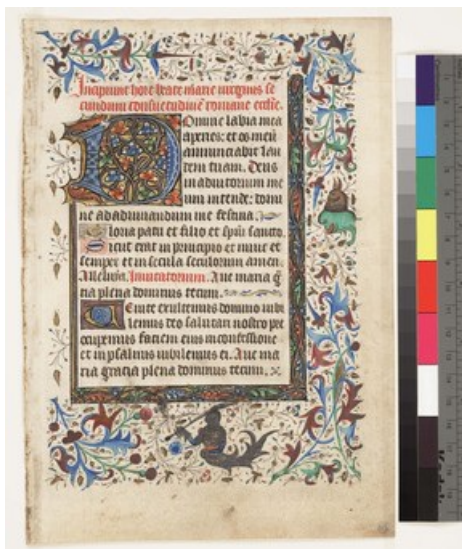 Incipiunt hore beate marie virginis se
cundum consuetudinē romane ecclīe.
Domine labia mea
aperies: et os meū
annunciabit lau
dem tuam. Deus
in adiutorium me
um intende: domi
ne ad adiuuandum me festina.
Gloria patri et filio et spiritu sancto.
Sicut erat in principio et nunc et
semper et in secula seculorum amen.
Alleluia. Inuitatorium. Aue maria ḡ
tia plena dominus tecum.
Uenite exultemus domino iubi
lemus deo salutari nostro pre
occupemus faciem eius in confessione
et in psalmis iubilemus ei. Aue ma
ria gracia plena dominus tecum.